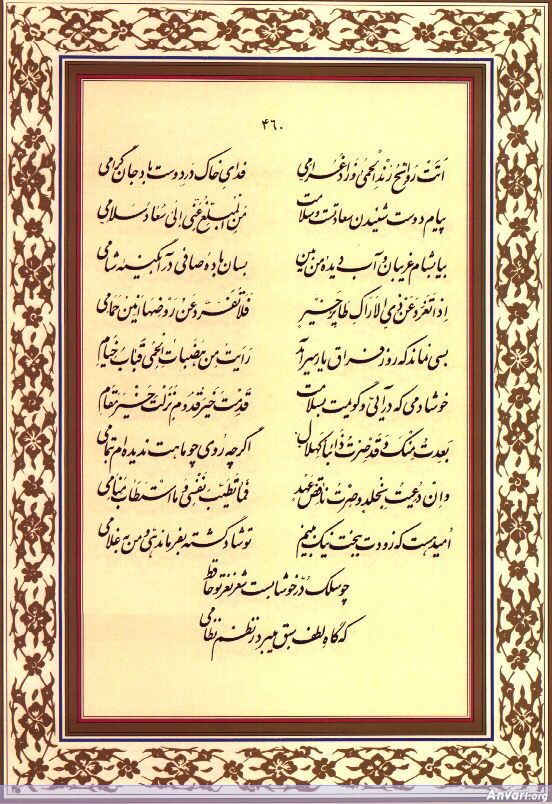 ۴۶۰
اتت روائح رند الحمی وزاد غرامی فدای خاک در دوست باد جان گرامی
پیام دوست شنیدن سعادتست و سلامت من المبلغ عنی الی سعاد سلامی
بیا بشام غریبان و آب دیده من بین بسان باده صافی در آبگینه شامی
اذا تغرد عن ذی الاراک طایر خیر فلا تفرد عن روضها انین حمامی
بسی نماند که روز فراق یار سرآید رایت من هضبات الحمی قباب خیام
خوشا دمی که درآئی و گویمت بسلامت قدمت خیر قدوم نزلت خیر مقام
بعدت منک و قد صرت ذائبا کهلال اگرچه روی چو ماهت ندیده‌ام بتمامی
وان دعیت بخلد و صرت ناقض عهد فما تطیب نفسی و ما استطاب منامی
امید هست که زودت ببخت نیک ببینم تو شاد گشته بفرماندهی و من بغلامی
چو سلک در خوشابست شعر نغز تو حافظ
که گاه لطف سبق میبرد ز نظم نظامی
Anvari.org